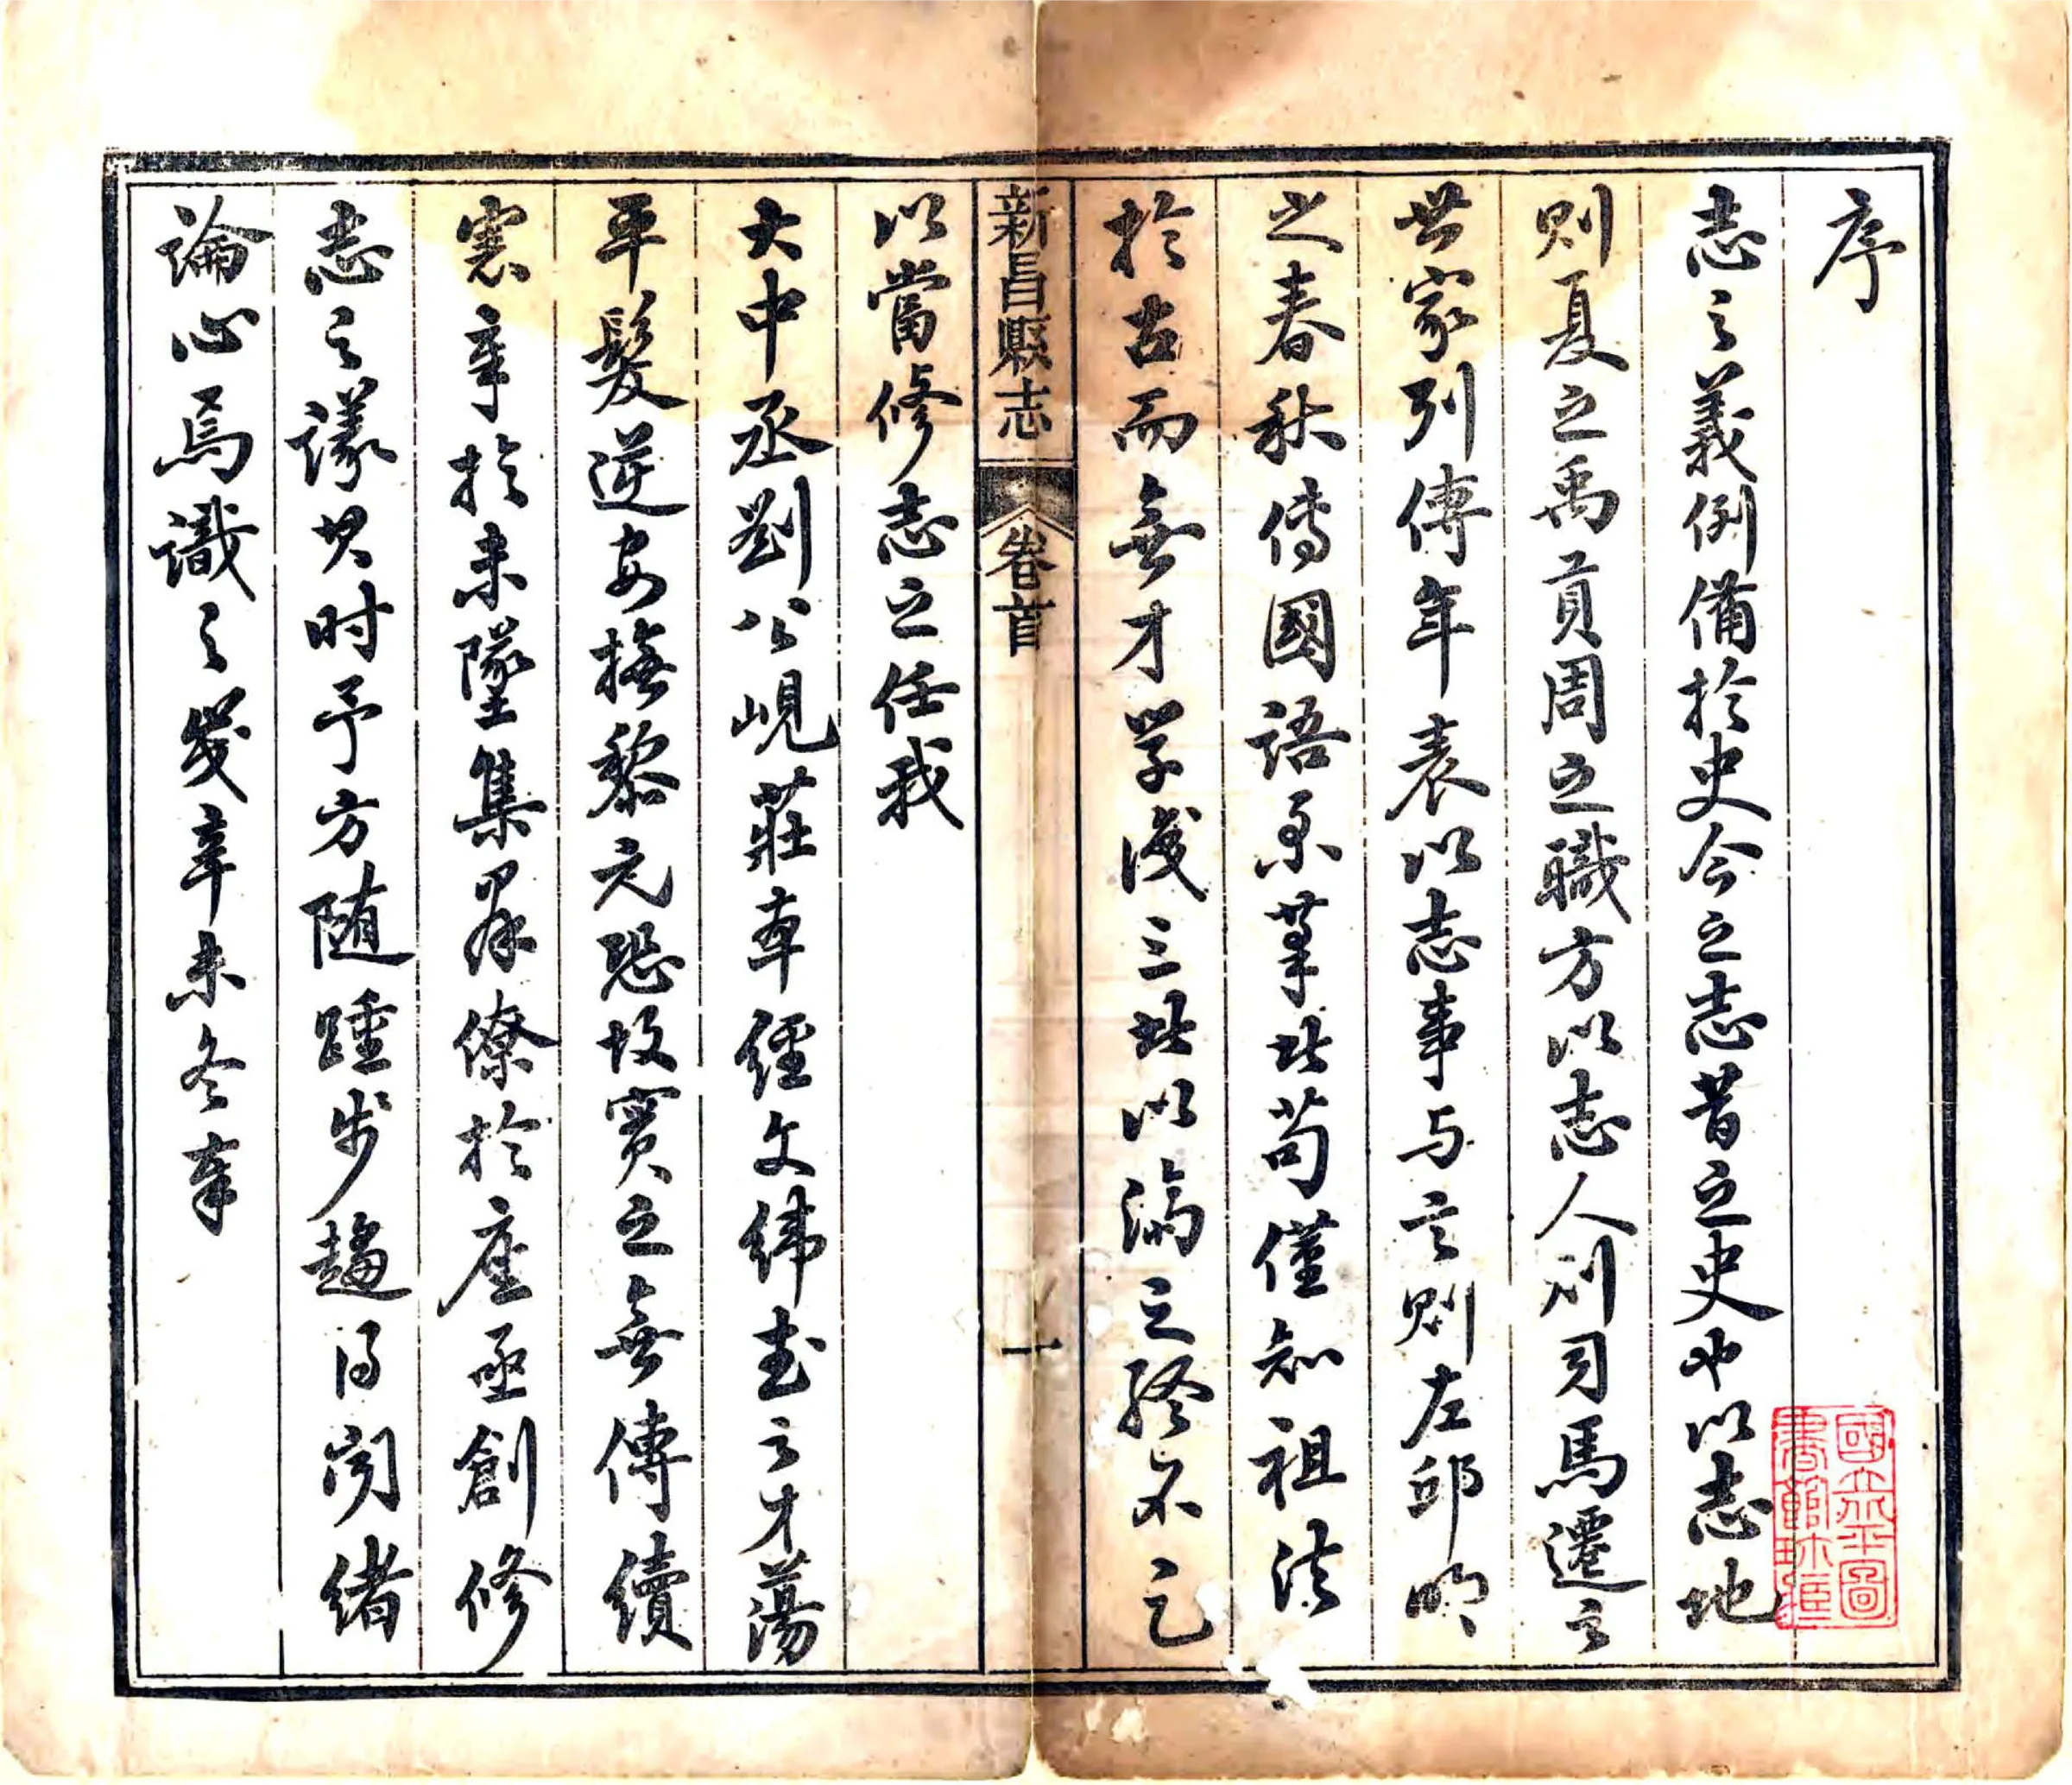 序
志之義例備於史今之志昔之史也以志地
則夏之禹貢周之職方以志人則司馬遷之
世家列傳年表以志事与言則左邱明
之春秋傳國語系等此苟僅知祖法
於古而無才学識三此以濟之終不足
以當修志之任我
新昌縣志
卷首
一
大中丞劉公峴莊本經文緯武之才蕩
平髮逆安撫黎元恐故實之無傳續
憲章於未墜集羣僚於座亟創修
志之議其时予方随踵步趨得闻緒
論心焉識之歲辛未冬奉
國立北平圖書館珍藏